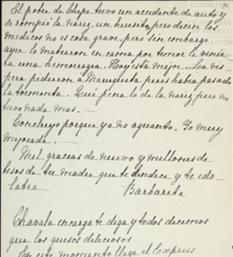 El pobre de Chepe tuvo un accidente de auto y
se rompió la nariz, un hueso, pero dicen los
médicos no es cosa grave, pero sin embargo
ayer lo metieron en cama por temor le venie-
ra una hemorragia. Hoy está mejor. La vis-
pera pidieron a Maruquita pues había pasado
la tormenta. Qué pena lo de la nariz pero no
tuvo nada mas.
Concluyo porque ya no aguanto. Yo muy
mejorada.
Mil gracias de nuevo y millones de
besos de tu madre que te bendice y te ido-
latra
Barbarita
Chavala encarga te diga y todos decimos
que los quesos deliciosos
En este momento llega el Express